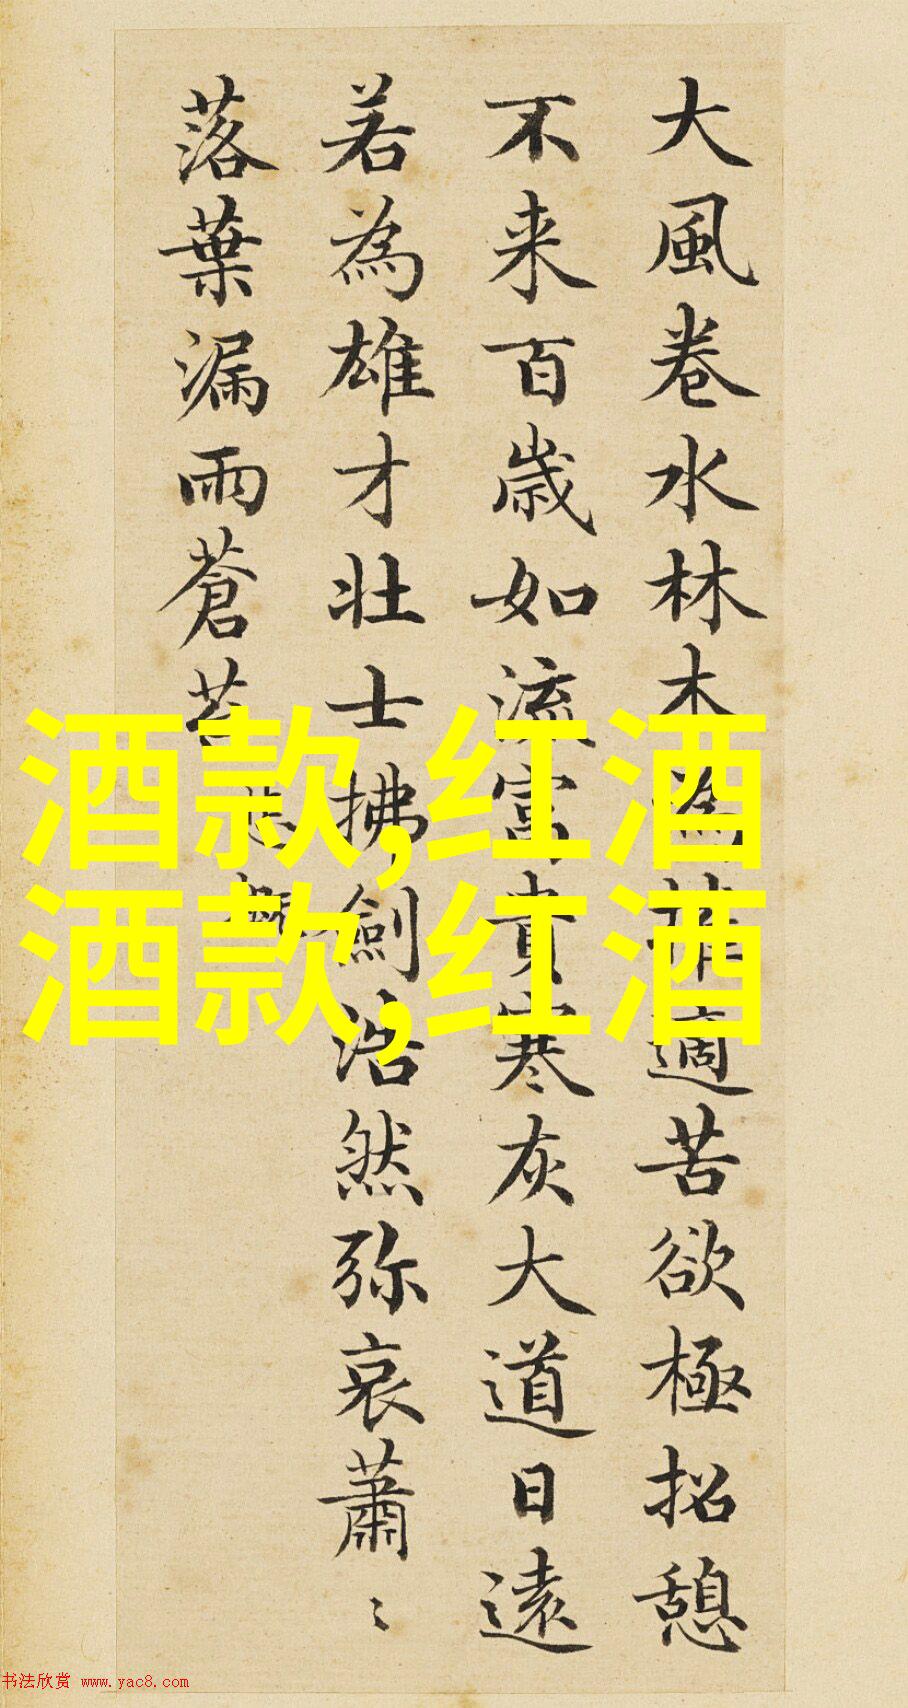 大風卷水林木為摧適苦欲極招憩
不来百歲如流富貴寒灰大道日遠
若為雄才壮士拂劍浩然弥哀蕭〻
落葉漏雨蒼苔
酒款,红酒
酒款,红酒
书法欣赏 www.yac8.com